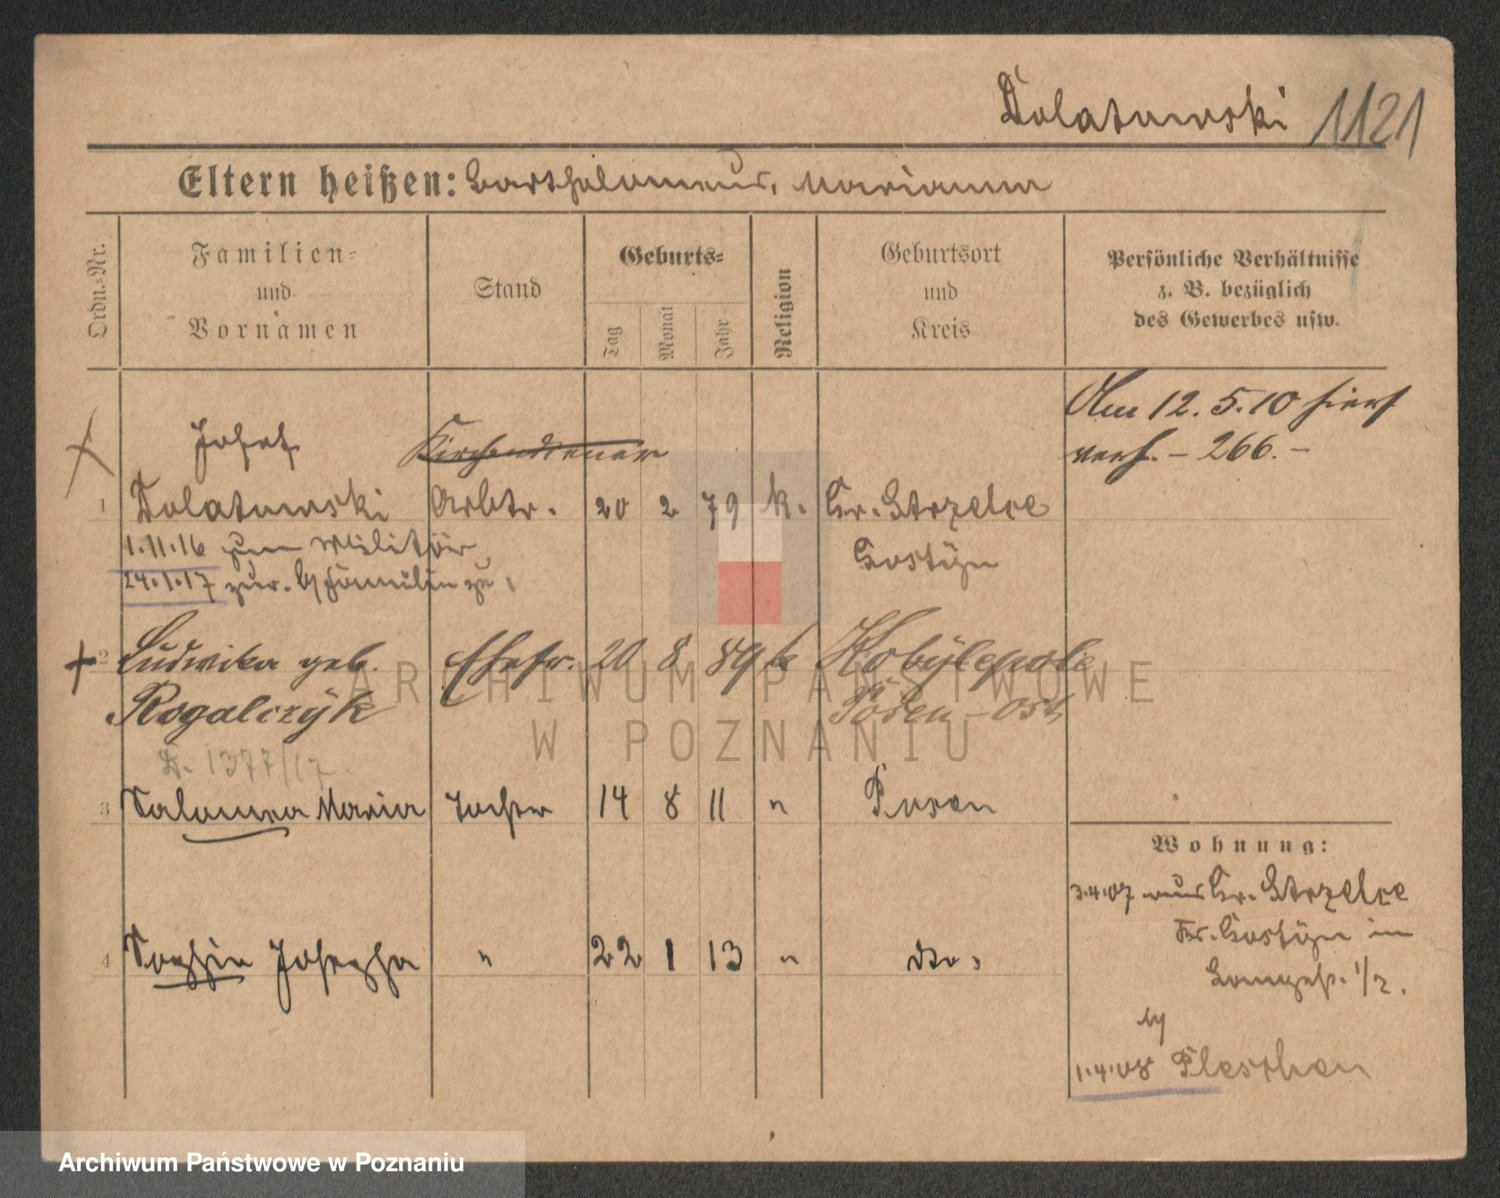 Dolatowski 1121
Eltern heißen: Bartholomeus, Marianna
Ordn.-Nr.
Familien-
und
Vornamen
Stand
Geburts-
Tag
Monat
Jahr
Religion
Geburtsort
und
Kreis
Persönliche Verhältnisse
z. B. bezüglich
des Gewerbes usw.
Am 12. 5. 10 hier
verh. – 266. –
Josef Kirchendiener
1 Dolatowski Arbtr. 20 2 79 k. Gr. Strzelce
1.11.16 zum Militär Gostÿn
24.1.17 zur.
2 Ludwika geb. Ehefr. 20 8 89 k Kobÿlepole
Rogalczÿk Posen-Ost
1377/17
3 Salomea Maria Tochter 14 8 11 " Posen
Wohnung:
3.4.07 aus Gr. Strzelce
Kr. Gostÿn in
Langestr. 1/2.
4 Sophie Josepha " 22 1 13 " dto.
1.4.08 Pleschen
ARCHIWUM PAŃSTWOWE
W POZNANIU
Archiwum Państwowe w Poznaniu